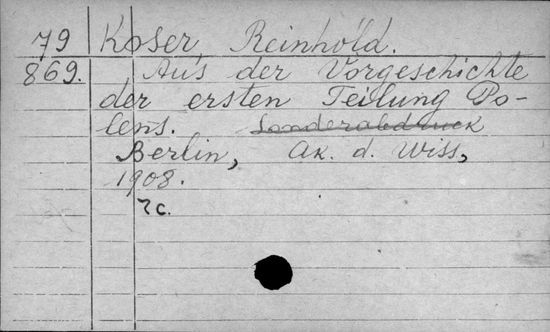 79 Koser, Reinhold.
869. Aus der Vorgeschichte
der ersten Teilung Po-
lens. Sonderabdruck
Berlin, Ak. d. Wiss,
1908.
7c.